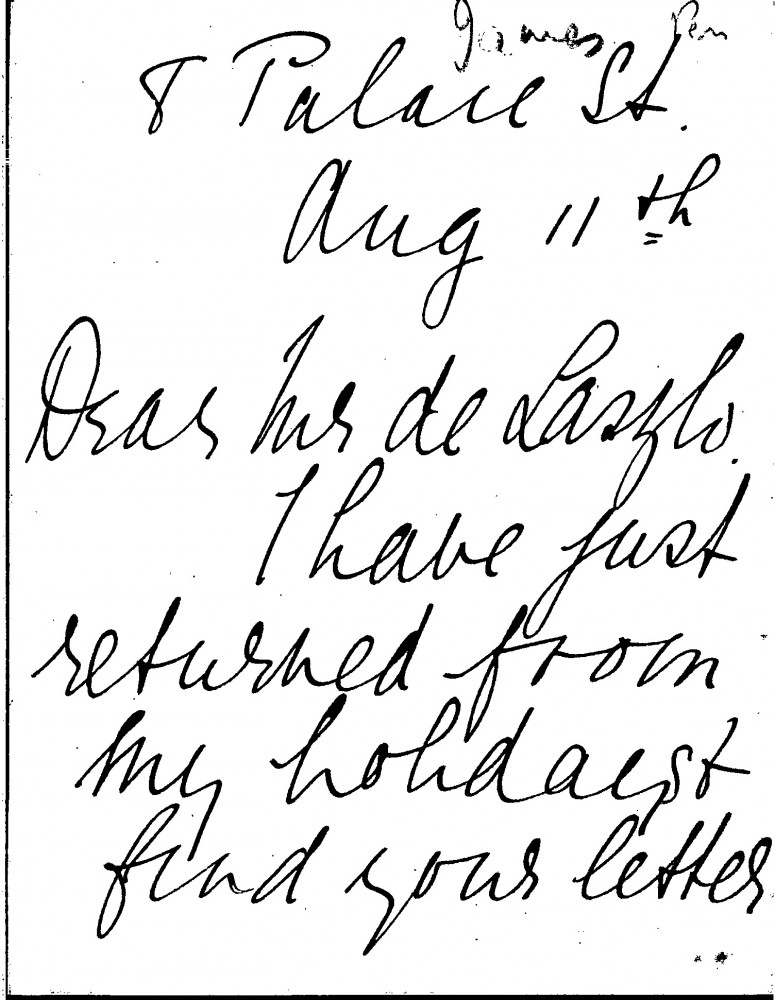 James Pen
8 Palace St.
Aug 11th
Dear Mr de Laszlo.
I have just
returned from
my holidays &
find your letter